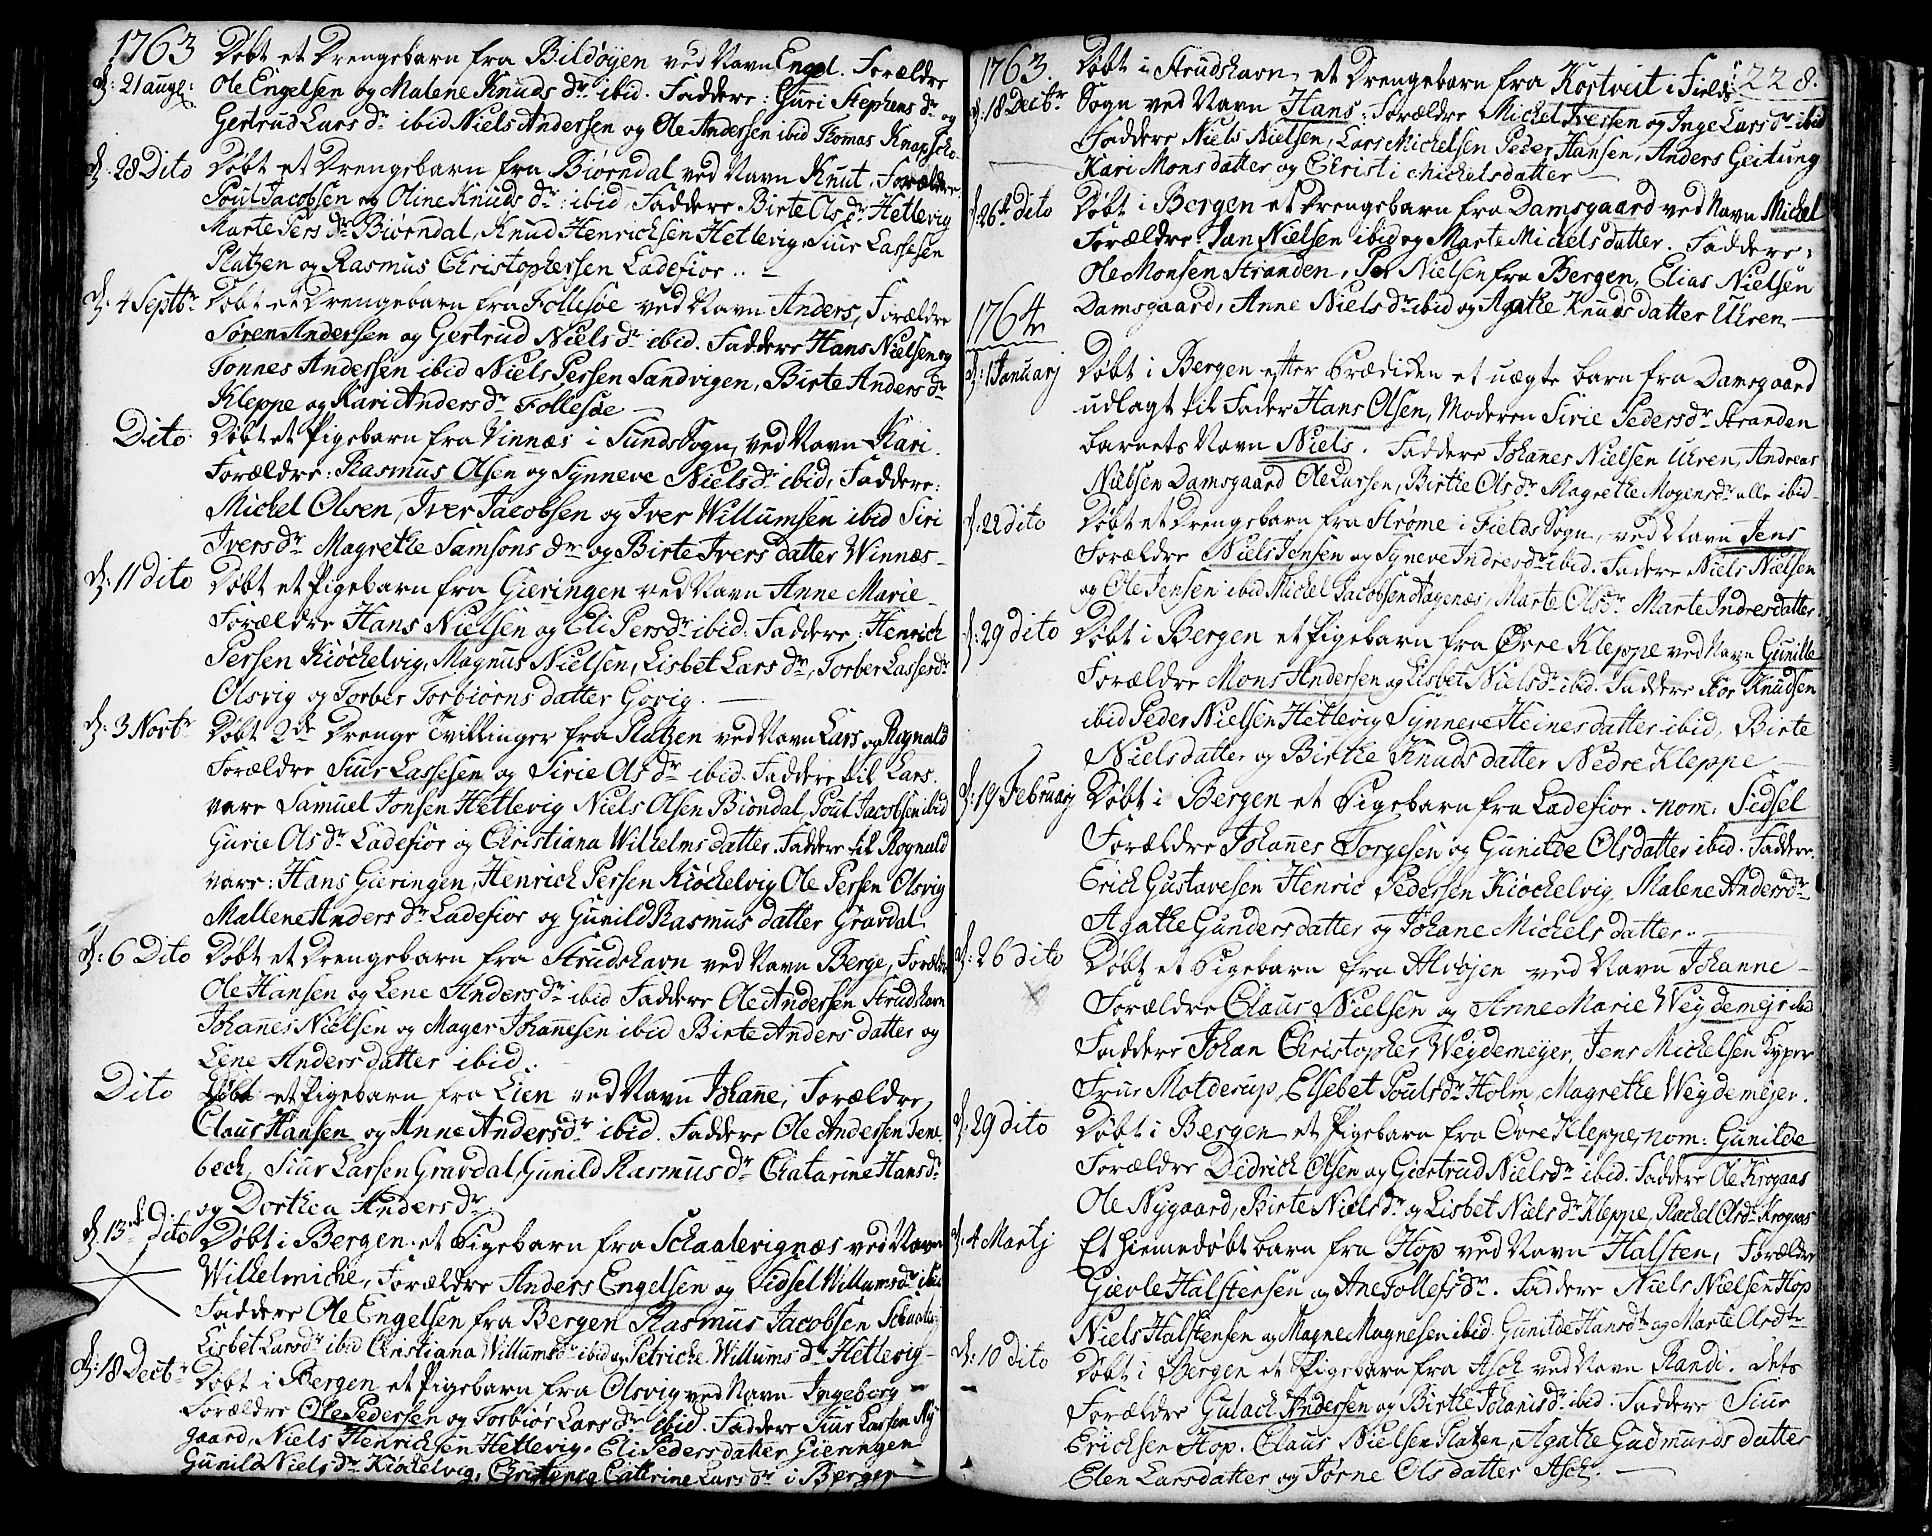 1763 Døbt et Drengebarn fra Bildøyen ved Navn Engel. Forældre
d: 21 augl: Ole Engelsen og Malene Knuds dr ibid. Faddere: Guri Stephens dr og
Gertrud Lars dr ibid Niels Andersen og Ole Andersen ibid Thomas Knapscho.
d. 28 Dito Døbt et Drengebarn fra Biørndal ved Navn Knut, Forældre
Poul Jacobsen og Oline Knuds dr: ibid, Faddere Birte Ols dr Hetlevig
Marte Pers dr Biørndal, Knud Henrichsen Hetlevig, Siur Lassesen
Platzen og Rasmus Christophersen Ladefior..
d: 4 Septbr Døbt et Drengebarn fra Follesøe ved Navn Anders, Forældre
Søren Andersen og Gertrud Niels dr ibid. Faddere Hans Nielsen og
Tonnes Andersen ibid Niels Persen Sandvigen, Birte Anders dr
Kleppe og Kari Anders dr Follesøe
Dito Døbt et Pigebarn fra Vinnæs i Sunds Sogn, ved Navn Kari.
Forældre: Rasmus Olsen og Synneve Niels dr ibid, Faddere:
Michel Olsen, Iver Jacobsen og Iver Willumsen ibid Siri
Ivers dr Magrethe Samsons dr og Birte Ivers datter Winnæs
d: 11 dito Døbt et Pigebarn fra Gieringen ved Navn Anne Marie
Forældre Hans Nielsen og Eli Pers dr ibid. Faddere: Henrich
Persen Kiøchelvig, Magnus Nielsen, Lisbet Lars dr, Torber Lasses dr
Olsvig og Torber Torbiørns datter Govig.
d: 3 Novbr Døbt 2de Drenge Tvillinger fra Platzen ved Navn Lars og Rognald
Forældre Siur Lassesen og Sirie Ols dr ibid. Faddere til Lars.
vare Samuel Jonsen Hetlevig Niels Olsen Biøndal, Poul Jacobsen ibid
Gurie Ols dr Ladefior og Christiana Wilhelms datter. Faddere til Rognald
vare: Hans Gieringen, Henrich Persen Kiøchelvig Ole Persen Olsvig
Mallene Anders dr Ladefior og Gunild Rasmus datter Gravdal
d: 6 Dito Døbt et Drengebarn fra Strudshavn ved Navn Berge, Forældre
Ole Hansen og Lene Anders dr ibid Faddere Ole Andersen Strudshavn
Johanes Nielsen og Mager Johannesen ibid Birte Anders datter og
Lene Anders datter ibid.
Dito Døbt et Pigebarn fra Lien ved Navn Johane, Forældre,
Claus Hansen og Anne Anders dr ibid. Faddere Ole Andersen Tene
bech, Siur Larsen Gravdal, Gunild Rasmus dr Chatarine Hans dr
og Dorthea Anders dr
d: 13 de Dito Døbt i Bergen et Pigebarn fra Schaalevignæs ved Navn
Wilhelmiche, Forældre Anders Engelsen og Sidsel Willums dr ibid
Faddere Ole Engelsen fra Bergen Rasmus Jacobsen
Lisbet Lars dr ibid Christiana Willums dr ibid og Petriche Willums dr Hetlevig
d: 18 Decbr Døbt i Bergen et Pigebarn fra Olsvig ved Navn Ingeborg
Forældre Ole Pedersen og Torbiør Lars dr ibid. Faddere Siur Larsen Ny
gaard, Niels Henrichsen Hetlevig. Eli Peders datter Gieringen
Gunild Niels dr Kiøchelvig, Christence Cattrine Lars dr i Bergen
1763. Døbt i Strudshavn et Drengebarn fra Kortveit i Fields 228.
d. 18 Decbr Sogn ved Navn Hans: Forældre Michel Iversen og Inge Lars dr ibid
Faddere Niels Nielsen, Lars Michelsen Peder Hansen, Anders Geitung
Kari Mons datter og Christi Michelsdatter
d: 26 de dito Døbt i Bergen et Drengebarn fra Damsgaard ved Navn Michel
Forældre: Jan Nielsen ibid og Marte Michels datter. Faddere:
Ole Monsen Stranden, Per Nielsen fra Bergen, Elias Nielsen
Damsgaard, Anne Niels dr ibid og Agathe Knuds datter Uhren,
1764
d: 1 Januarj Døbt i Bergen efter Prædiken et uægte barn fra Damsgaard
udlagt til Fader Hans Olsen, Moderen Sirie Peders dr Stranden
barnets Navn Niels. Faddere Johanes Nielsen Uhren, Andreas
Nielsen Damsgaard Ole Larsen, Birthe Ols dr Magrethe Mogens dr alle ibid
d: 22 dito Døbt et Drengebarn fra Strøme i Fields Sogn, ved Navn Jens
Forældre Niels Jensen og Syneve Indres dr ibid. Fadere Niels Nielsen
og Ole Jensen ibid Michel Jacobsen Hagenæs, Marte Ols dr Marte Indresdatter.
d: 29 dito Døbt i Bergen et Pigebarn fra Øvre Kleppe ved Navn Gunille
Forældre Mons Andersen og Lisbet Niels dr ibid. Faddere Knudsen
ibid Peder Nielsen Hetlevig Synneve Heines datter ibid, Birte
Nielsdatter og Birthe Knuds datter Nedre Kleppe
d: 19 February Døbt i Bergen et Pigebarn fra Ladefior. nom: Sidsel
Forældre Johanes Torgesen og Gunilde Olsdatter ibid. Faddere.
Erich Gustavesen Henric Pedersen Kiøchelvig, Malene Anders dr
Agathe Gunders datter og Johane Michels datter.
d: 26 dito Døbt et Pigebarn fra Alvøjen ved Navn Johanne
Forældre Claus Nielsen og Anne Marie Weydemejr ibid
Faddere Johan Christopher Weydemeyer, Jens Michelsen Kyper
Frue Motderup, Elsebet Pouls dr Holm, Magrethe Weydemejer.
d: 29 dito Døbt i Bergen et Pigebarn fra Øvre Kleppe, nom: Gunilde
Forældre Didrich Olsen og Giertrud Niels dr ibid. Faddere Ole Krogaas
Ole Nygaard, Birte Niels dr og Lisbet Niels dr Kleppe, Rachel Ols dr Krogaas
d. 4 Martj Et hiemedøbt barn fra Hop ved Navn Halsten, Forældre
Gievle Halstensen og Ane Tollefs dr. Faddere Niels Nielsen Hop
Niels Halstensen og Magne Magnesen ibid Gunilde Hans dr og Marte Ols dr
d: 10 dito Døbt i Bergen et Pigebarn fra Asch ved Navn Randi. dets
Forældre Gulach Andersen og Birthe Johanis dr ibid. Faddere Siur
Erichsen Hop. Claus Nielsen Platzen, Agathe Gudmunds datter
Elen Larsdatter og Jørne Ols datter Asch.